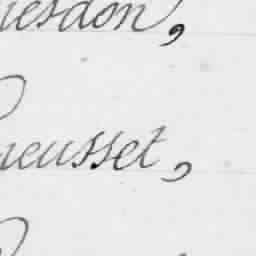 iesdon,
neusset,